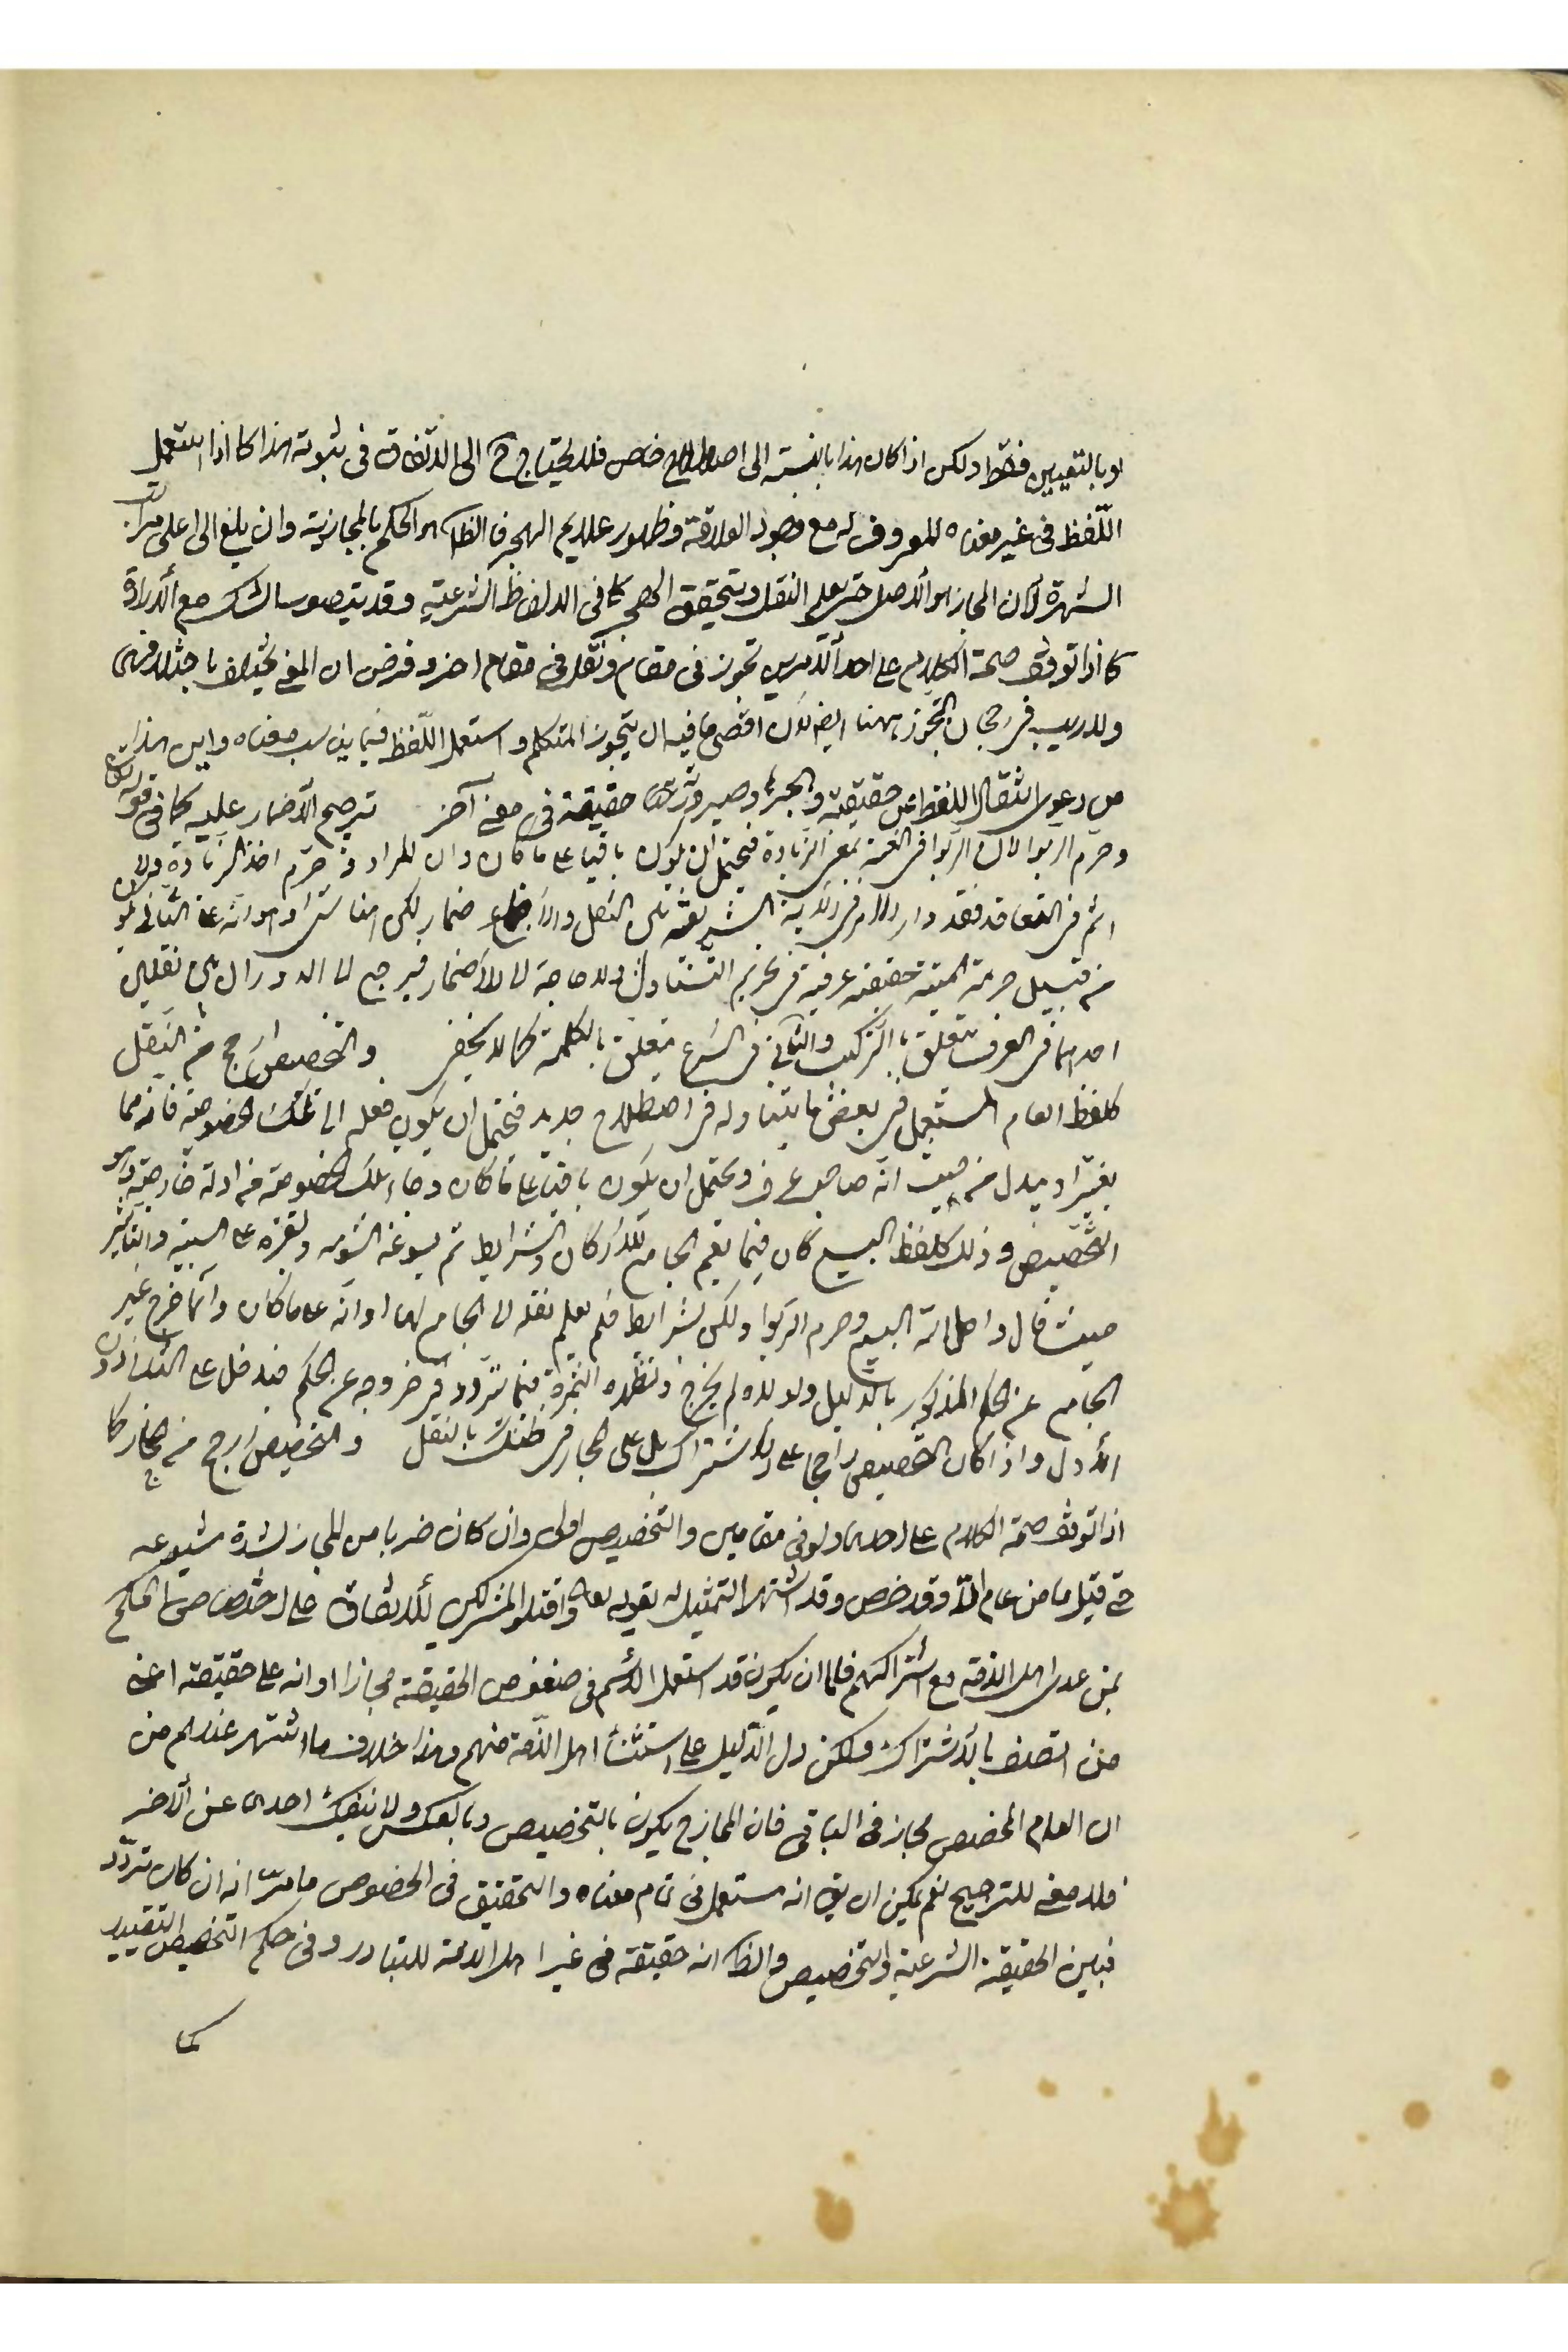 او بالتعيين فقط ولكن اذا كان هذا بالنسبة الى اصطلاح خاص فلا يحتاج ح الى الاتفاق فى ثبوته هذا كما اذا استعمل
اللّفظ فى غير معناه المعروف له مع وجود العلاقة وظهور علايم الهجر فالظاهر الحكم بالمجازية وان بلغ الى اعلى مراتب
الشهرة لان المجاز هو الأصل حتى يعلم النقل ويتحقق الهجر كما فى الالفاظ الشرعية وقد يتصور الشك مع الارادة
كما اذا توقف صحة الكلام على احد الأمرين تجوز فى مقام ونقل فى مقام اخر وفرض ان المعنى يختلف باختلافهما
ولا ريب فى رجحان التجوز ههنا ايضا لان اقصى ما فيه ان يتجوز المتكلم واستعمل اللّفظ فيما يناسب معناه واين هذا
من دعوى انتقال اللفظ عن حقيقته وهجرها وصيرورته حقيقة فى معنى آخر ترجيح الأضمار عليه كما فى قوله تعالى
وحرم الربوا لان الربوا فى اللغة بمعنى الزيادة فيحتمل ان يكون باقيا على ما كان وان المراد وحرم اخذ الزيادة ولا
اثم فى التعاقد فقد دار الامر فى الآية الشريفة بين النقل والاضمار لكن المناسب او هو انه على الثانى هو
من قبيل حرمة الميتة حقيقة عرفية فى تحريم التناول ولا حاجة الى الاضمار فيرجع الى الدوران بين نقلين
احدهما فى العرف يتعلق بالتركيب والثانى فى الشرع متعلق بالكلمة كما لا يخفى والتخصيص ارجح من النقل
كلفظ العام المستعمل فى بعض ما يتناوله فى اصطلاح جديد فيحتمل ان يكون نقله الى تلك الخصوصية فانه مما
يغير او يبدل من حيث انه صاحب عرف ويحتمل ان يكون باقيا على ما كان وجاء تلك الخصوصية من ادلة خارجية وهو
التخصيص وذلك كلفظ البيع كان فيما يعم الجامع للاركان والشرايط ثم
حيث قال واحل الله البيع وحرم الربوا ولكن بشرايط فلم يعلم نقله الى الجامع لها او انه على ما كان وانما خرج غير
الجامع عن الحكم المذكور بالدليل ولولاه لم يخرج وتظهر الثمرة فيما تردد فى خروجه عن الحكم فيدخل على الثانى دون
الأول واذا كان التخصيص راجحا على الاشتراك بل على المجاز فى ظنك بالنقل والتخصيص ارجح من المجاز كما
اذا توقف صحة الكلام على احدهما ولو فى مقامين والتخصيص اولى وان كان ضربا من المجاز لشدة شيوعه
حتى قيل ما من عام الا وقد خص وقد اشتهر التمثيل له بقوله تعالى واقتلوا المشركين للاتفاق على اختصاص الحكم
بمن عدى اهل الذمة مع اشراكهم فاما ان يكون قد استعمل الاسم فى الحقيقة مجازا او انه على حقيقته اعنى
من اتصف بالاشتراك ولكن دل الدليل على استثناء اهل الذّمة منهم وهذا خلاف ما اشتهر عندهم من
ان العام المخصص مجاز فى الباقى فان المجاز ح يكون بالتخصيص وبالعكس ولا ينفك احدهما عن الآخر
فلا معنى للترجيح نعم يمكن ان يق انه مستعمل فى تمام معناه والتحقيق فى الخصوص ما مرّ انه ان كان تردّد
فبين الحقيقة الشرعية والتخصيص والظاهر انه حقيقة فى غير اهل الذمة للتبادر وفى حكم التخصيص التقييد
كما